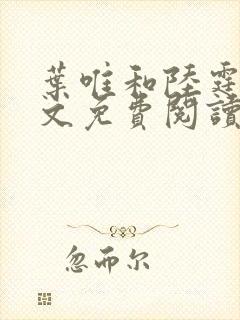 葉唯和陸霆
文免費閱讀
忽而尔